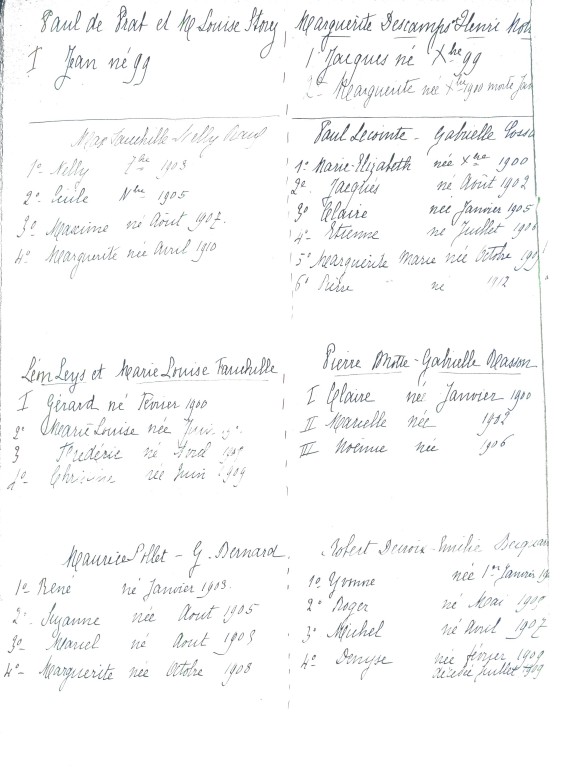 Paul de Prat et M Louise Storez
I Jean né 99
Marguerite Descamps Henri
1 Jacques né Xbre 99
2° Marguerite née Xbre 1900 morte Jan
Max Fauchille Nelly
1° Nelly 7bre 1903
2° Cécile Nbre 1905
3° Maxime né Août 1907.
4° Marguerite née Avril 1910
Paul Lecointe - Gabrielle
1° Marie-Elizabeth née Xbre 1900
2° Jacques né Août 1902
3° Claire née Janvier 1905
4° Etienne né Juillet 1906
5° Marguerite Marie née Octobre
6° Pierre né 1912
Léon Leys et Marie Louise Fauchille
I Gérard né Février 1900
2° Marie Louise née
3 Frédéric né Avril
4° Christine née Juin 1909
Pierre Motte - Gabrielle Masson
I Claire née Janvier 1900
II Marielle née 1902
III Noémie née 1906
Maurice Pollet - G. Bernard.
1° René né Janvier 1903.
2° Suzanne née Aout 1905
3° Marcel né Aout
4° - Marguerite née Octobre 1908
Robert Decroix - Emilie
1° Yvonne née 1er Janvier
2° Roger né Mai
3° Michel né Avril 1907
4° Denyse née février 1909
décédée Juillet 1909